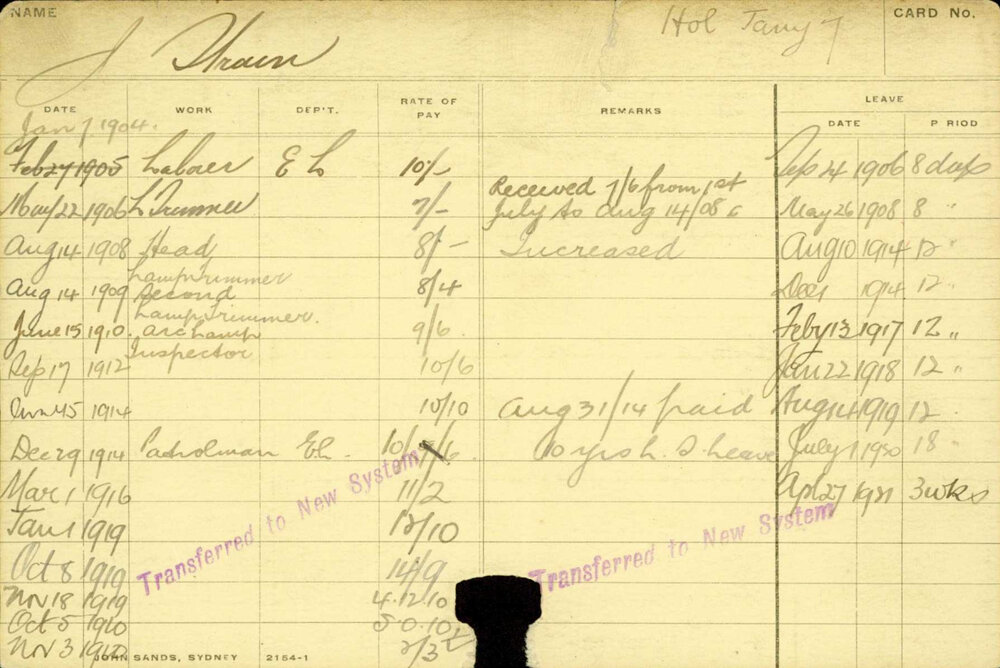 NAME
Hol Jany 7
CARD No.
J
DATE WORK DEP'T. RATE OF PAY REMARKS LEAVE
DATE P RIOD
Jan 7 1904.
Feb 27 1905 Labourer E L 10/- Sep 24 1906 8 days
Received 7/6 from 1st
May 22 1906 L Trimmer 7/- July to Aug 14/08 May 26 1908 8 "
Aug 14 1908 Head 8/- Increased Aug 10 1914 12 "
Lamptrimmer
Aug 14 1909 Second 8/4 Dec 1 1914 12 "
Lamp Trimmer.
June 15 1910. Arc Lamp 9/6 Feby 13 1917 12 "
Inspector
Sep 17 1912 10/6 Jan 22 1918 12 "
1914 10/10 Aug 31/14 paid Aug 14 1919 12
Dec 29 1914 Patrolman EL. 10/ July 1 1920 18
10 yrs L. S. Leave
Mar 1 1916 11/2 Apl 27 1921 3 wks
Jan 1 1919 12/10
Transferred to New System
Transferred to New System
Oct 8 1919 14/9
Nov 18 1919 4.12.10
Oct 5 1920 5.0.10
Nov 3 2/3
JOHN SANDS, SYDNEY 2154-1